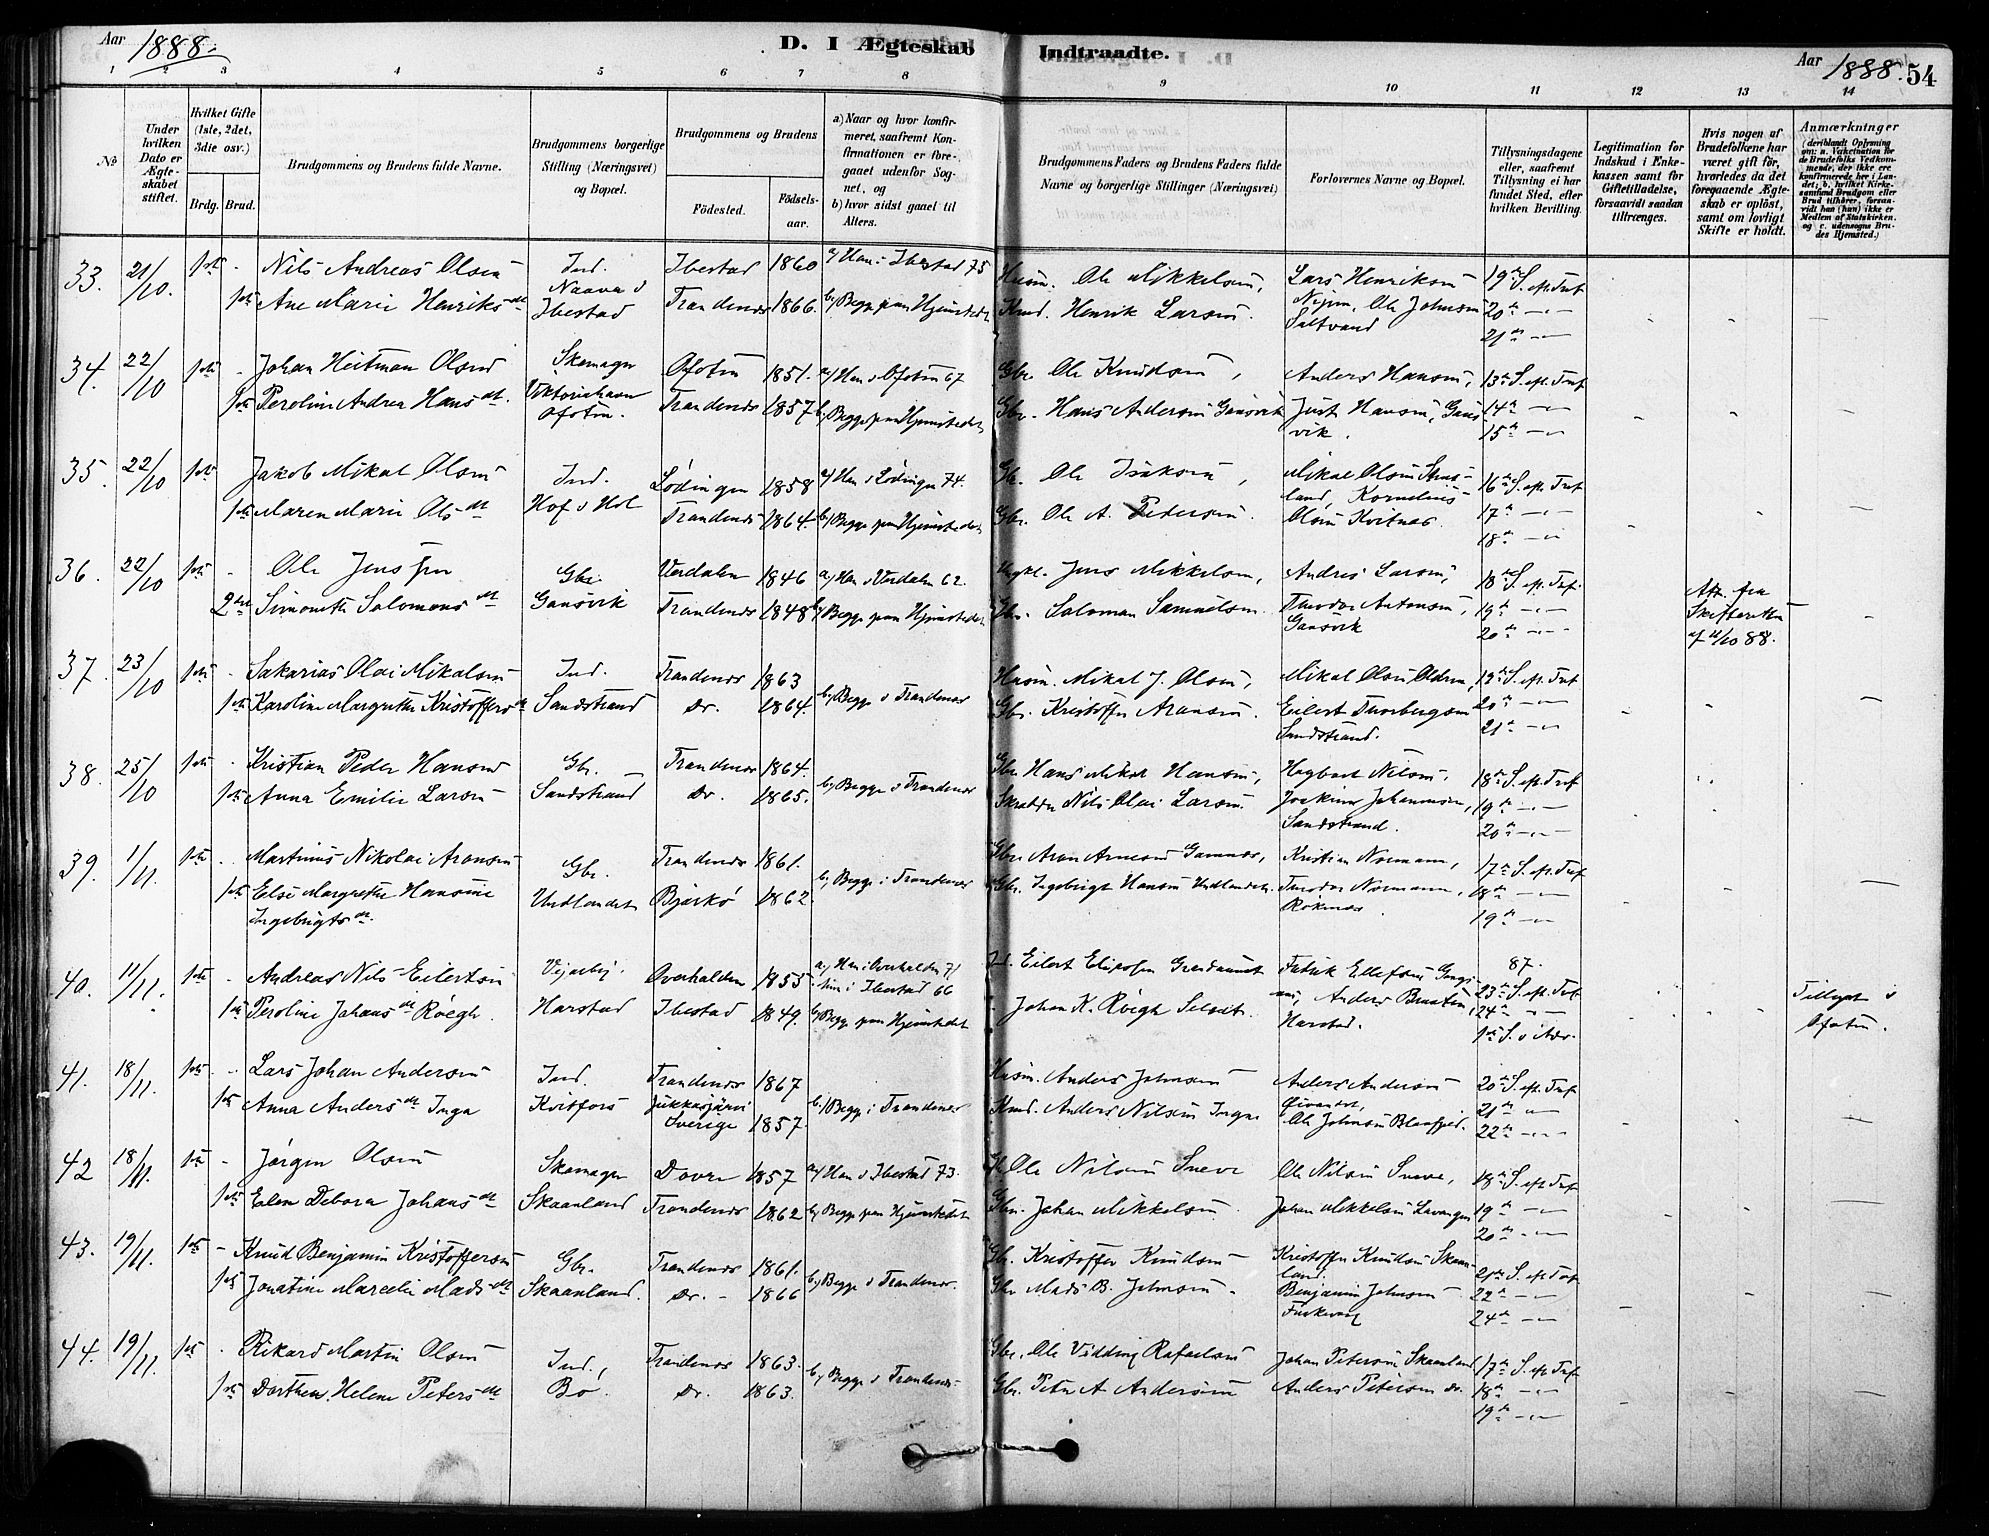 Aar 1888.
D. I Ægteskab Indtraadte.
Aar 1888. 54
1 2 3 4 5 6 7 8 9 10 11 12 13 14
No
Under hvilken Dato er Ægteskabet stiftet.
Hvilket Gifte (1ste, 2det, 3die osv.)
Brdg. Brud.
Brudgommens og Brudens fulde Navne.
Brudgommens borgerlige Stilling (Næringsvei) og Bopæl.
Brudgommens og Brudens
Fødested.
Fødselsaar.
a) Naar og hvor konfirmeret, saafremt Konfirmationen er foregaaet udenfor Sognet, og
b) hvor sidst gaaet til Alters.
Brudgommens Faders og Brudens Faders fulde Navne og borgerlige Stillinger (Næringsvei)
Forlovernes Navne og Bopæl.
Tillysningsdagene eller, saafremt Tillysning ei har fundet Sted, efter hvilken Bevilling.
Legitimation for Indskud i Enkekassen samt for Giftetilladelse, forsaavidt saadan tiltrænges.
Hvis nogen af Brudefolkene har været gift før, hvorledes da det foregaaende Ægteskab er opløst, samt om lovligt Skifte er holdt.
Anmærkninger
33. 21/10. 1ste - Nils Andreas Olsen Ind. Ibestad 1860 a) Han i Ibestad 75 Husm. Ole Mikkelsen, Lars Henriksen 19de S. eft. Tref.
1ste Ane Marie Henriksdt Naava i Ibestad Trandenes 1866. b) Begge paa Hjemstedet Henrik Larsen. Ole Johnsen Saltvand 20de
21de
34. 22/10 1ste - Johan Heitman Olsen Skomager Ofoten 1851. a) Han i Ofoten 67 Gbr. Ole Knudsen, Anders Hansen, 13de S. eft. Tref
1ste Peroline Andrea Hansdt. Viktoriahavn Ofoten. Trandenes 1857 b) Begge paa Hjemstedet Gbr. Hans Andersen Gansvik Just Hansen, Gansvik. 14de
15de
35. 22/10 1ste Jakob Mikal Olsen Ind. Lødingen 1858 a) Han i Lødingen 74. Gbr. Ole Isaksen, Mikal Olsen 16de S. eft. Tref
1ste Maren Marie Olsdt Hof i Hol Trandenes 1864. b) Begge paa Hjemstedet Gbr. Ole A. Pedersen. Kornelius Olsen Kvitnes. 17de
18de
36. 22/10 1ste - Ole Jenssen Gbr. Verdalen 1846 a) Han i Verdalen 62. Jens Mikkelsen, Andreas Larsen, 18de S. eft. Tref.
2den Simonette Salomonsdt Gansvik Trandenes 1848 b) Begge paa Hjemstedet Gbr. Saloman Samuelsen. Theodor Antonsen, Gansvik 19de Att. fra Skifteretten
20de
37. 23/10 1ste - Sakarias Olai Mikalsen Ind. Trandenes 1863 b) Begge i Trandenes Husm. Mikal J. Olsen, Mikal Olsen 19de S. eft. Tref
1ste Karoline Margrethe Kristoffersdt Sandstrand do. 1864. Gbr. Kristoffer Aronsen. Eilert Thorbergsen Sandstrand. 20de
21de
38. 25/10 1ste - Kristian Peder Hansen Gbr. Trandenes 1864. b) Begge i Trandenes Gbr. Hans Mikal Hansen, Hagbart Nilsen, 18de S. eft. Tref
1ste Anna Emilie Larsen Sandstrand do. 1865. Skrædder Nils Olai Larsen. Joakim Johannesen, Sandstrand. 19de
20de
39. 1/11. 1ste - Martinus Nikolai Aronsen Gbr. Trandenes 1861. b) Begge i Trandenes Gbr. Aron Arnesen Gamnes, Kristian Normann, 17de S. eft. Tref
1ste Else Margrethe Hansine Ingebrigtsdt. Undlandet Bjarkø 1862. Gbr. Ingebrigt Hansen Undlandet. Theodor Normann, Røknes. 18de
19de
40. 11/11. 1ste - Andreas Nils Eilertsen Vejarbej. Overhalden 1855 a) Han i Overhalden 71 Eilert 87.
1ste Peroline Johansdt Røegh. Harstad Ibestad 1849. hun i Ibestad 66 b) Begge paa Hjemstedet Johan K. Røegh Selset. Anders Braaten, Harstad. 23de S. eft. Tref 24de 1ste S. i Adv. Tillyst i Ofoten.
41. 18/11. 1ste - Lars Johan Andersen Ind. Trandenes 1867 b) Begge i Trandenes Husm. Anders Johnsen Anders Andersen 20de S. eft. Tref
1ste Anna Andersdt Inga Kvitfors Jukkasjärvi Sverige 1857. Anders Nilsen Inga Ole Johnsen Blaafjeld. 21de
22de
42 18/11. 1ste - Jørgen Olsen Skomager Dovre 1857 a) Han i Ibestad 73. Ole Nilsen Sneve Ole Nilsen Sneve, 18de S. eft. Tref
1ste Elen Debora Johansdt Skaanland Trandenes 1862 b) Begge paa Hjemstedet Gbr. Johan Mikkelsen. Johan Mikkelsen Lavangen 19de
20de
43. 19/11. 1ste - Knud Benjamin Kristoffersen Gbr. Trandenes 1861. b) Begge i Trandenes. Gbr. Kristoffer Knudsen Kristoffer Knudsen Skaanland. 21de S. eft. Tref
1ste Jonatine Marselie Madsdt Skaanland. do. 1866 Gbr Mads B. Johnsen. Benjamin Johnsen 22de
24de
44. 19/11. 1ste - Rikard Martin Olsen Ind., Trandenes 1863. b) Begge i Trandenes Gbr. Ole Vidding Rafaelsen Johan Petersen Skaanland 17de S. eft. Tref
1ste Dorthea Helene Petersdt Bø. do. 1863. Gbr. Peter A. Andersen Anders Petersen do. 18de
19de